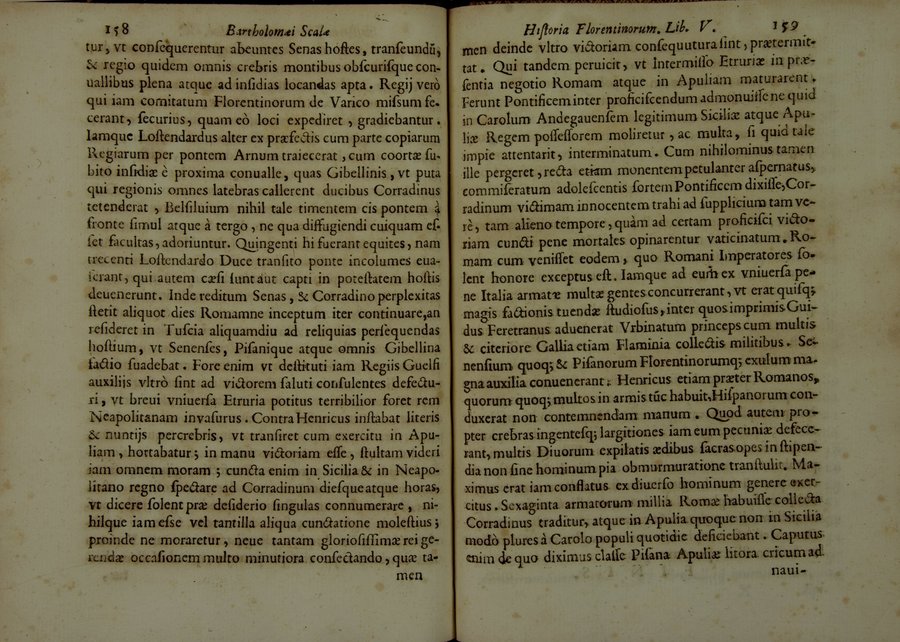 158 Bartholomæi Scalæ
tur, vt conſequerentur abeuntes Senas hoſtes, tranſeundũ,
& regio quidem omnis crebris montibus obſcuriſque con-
uallibus plena atque ad inſidias locandas apta. Regij verò
qui iam comitatum Florentinorum de Varico miſsum fe-
cerant, ſecurius, quam eò loci expediret, gradiebantur.
Iamque Loſtendardus alter ex præfectis cum parte copiarum
Regiarum per pontem Arnum traiecerat, cum coortæ ſu-
bito inſidiæ è proxima conualle, quas Gibellinis, vt puta
qui regionis omnes latebras callerent ducibus Corradinus
tetenderat, Belſiluium nihil tale timentem cis pontem à
fronte ſimul atque à tergo, ne qua diffugiendi cuiquam eſ-
ſet facultas, adoriuntur. Quingenti hi fuerant equites, nam
trecenti Loſtendardo Duce tranſito ponte incolumes eua-
ſerant, qui autem cæſi ſunt aut capti in poteſtatem hoſtis
deuenerunt. Inde reditum Senas, & Corradino perplexitas
ſtetit aliquot dies Romamne inceptum iter continuare, an
reſideret in Tuſcia aliquamdiu ad reliquias perſequendas
hoſtium, vt Senenſes, Piſanique atque omnis Gibellina
factio ſuadebat. Fore enim vt deſtituti iam Regiis Guelfi
auxilijs vltrò ſint ad victorem ſaluti conſulentes defectu-
ri, vt breui vniuerſa Etruria potitus terribilior foret rem
Neapolitanam invaſurus. Contra Henricus inſtabat literis
& nuntijs percrebris, vt tranſiret cum exercitu in Apu-
liam, hortabatur; in manu victoriam eſſe, ſtultam videri
iam omnem moram; cuncta enim in Sicilia & in Neapo-
litano regno ſpectare ad Corradinum dieſque atque horas,
vt dicere ſolent præ deſiderio ſingulas connumerare, ni-
hilque iam eſse vel tantilla aliqua cunctatione moleſtius;
proinde ne moraretur, neue tantam glorioſiſſimæ rei ge-
rendæ occaſionem multo minutiora conſectando, quæ ta-
men
Hiſtoria Florentinorum. Lib. V. 159
men deinde vltro victoriam conſequutura ſint, prætermit-
tat. Qui tandem peruicit, vt Intermiſſo Etruriæ in præ-
ſentia negotio Romam atque in Apuliam maturarent.
Ferunt Pontificem inter proficiſcendum admonuiſſe ne quid
in Carolum Andegauenſem legitimum Siciliæ atque Apu-
liæ Regem poſſeſſorem moliretur, ac multa, ſi quid tale
impie attentarit, interminatum. Cum nihilominus tamen
ille pergeret, recta etiam monentem petulanter aſpernatus,
commiſeratum adoleſcentis ſortem Pontificem dixiſſe, Cor-
radinum victimam innocentem trahi ad ſupplicium tam ve-
rè, tam alieno tempore, quàm ad certam proficiſci victo-
riam cuncti pene mortales opinarentur vaticinatum. Ro-
mam cum veniſſet eodem, quo Romani Imperatores ſo-
lent honore exceptus eſt. Iamque ad eum ex vniuerſa pe-
ne Italia armatæ multæ gentes concurrerant, vt erat quiſq;
magis factionis tuendæ ſtudioſus, inter quos imprimis Gui-
dus Feretranus aduenerat Vrbinatum princeps cum multis
& citeriore Gallia etiam Flaminia collectis militibus. Se-
nenſium quoq; & Piſanorum Florentinorumq; exulum ma-
gna auxilia conuenerant. Henricus etiam præter Romanos,
quorum quoq; multos in armis tũc habuit, Hiſpanorum con-
duxerat non contemnendam manum. Quod autem pro-
pter crebras ingenteſq; largitiones iam eum pecuniæ defece-
rant, multis Diuorum expilatis ædibus ſacras opes in ſtipen-
dia non ſine hominum pia obmurmuratione tranſtulit. Ma-
ximus erat iam conflatus ex diuerſo hominum genere exer-
citus. Sexaginta armatorum millia Romæ habuiſſe collecta
Corradinus traditur, atque in Apulia quoque non in Sicilia
modò plures à Carolo populi quotidie deficiebant. Caputus
enim de quo diximus claſſe Piſana Apuliæ litora cricum ad
naui-